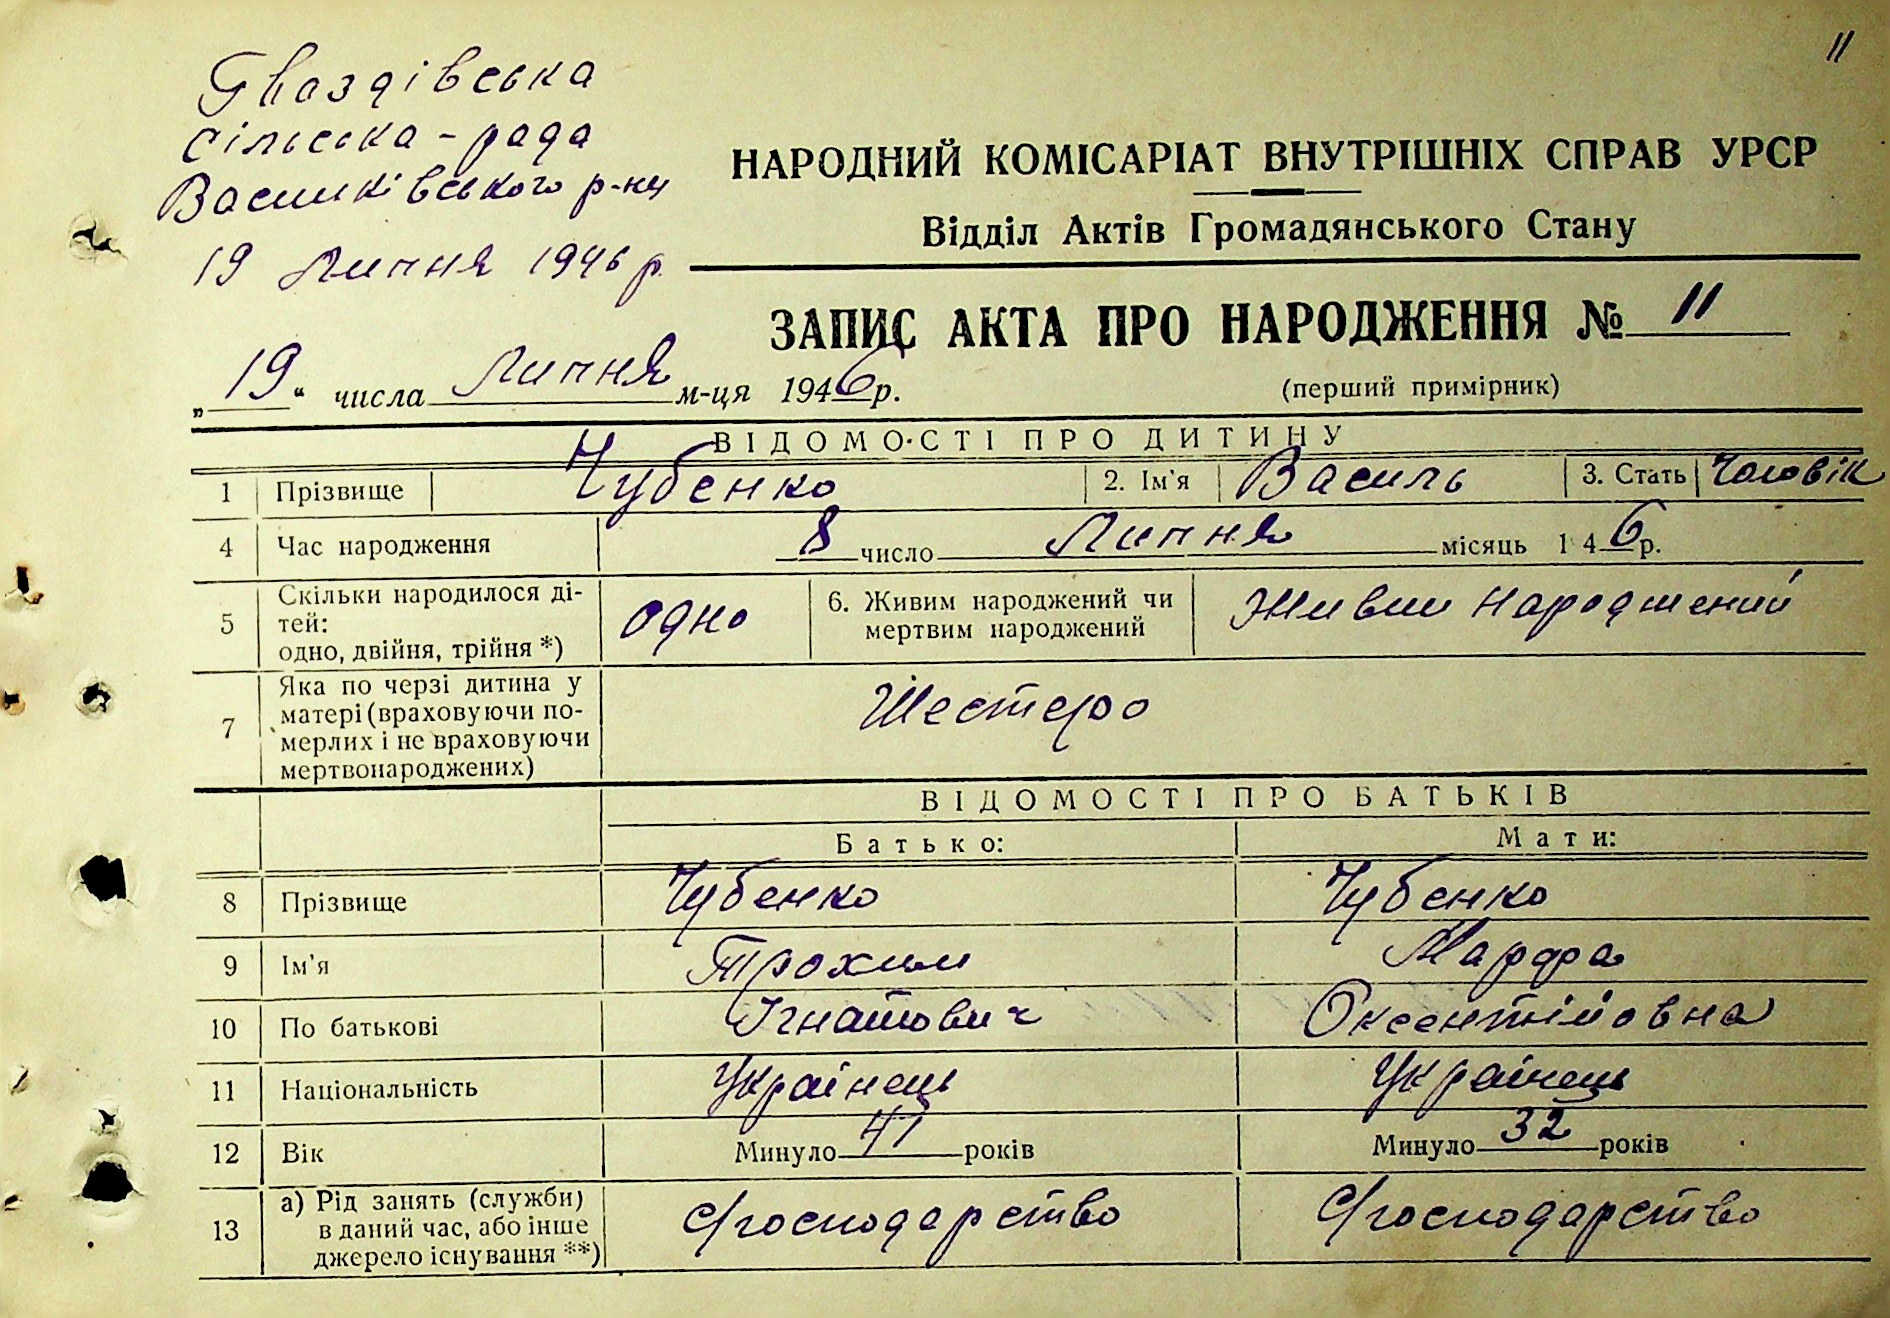 11
Гваздівська
сільська-рада
Васильківського р-ну
19 Липня 1946 р.
НАРОДНИЙ КОМІСАРІАТ ВНУТРІШНІХ СПРАВ УРСР
Відділ Актів Громадянського Стану
ЗАПИС АКТА ПРО НАРОДЖЕННЯ № 11
„19“ числа Липня м-ця 1946 р.
(перший примірник)
ВІДОМОСТІ ПРО ДИТИНУ
1 Прізвище Чубенко 2. Ім'я Василь 3. Стать Чоловік
4 Час народження 8 число Липня місяць 1 46 р.
5 Скільки народилося ді-
тей:
одно, двійня, трійня *) одно 6. Живим народжений чи
мертвим народжений Живим народжений
7 Яка по черзі дитина у
матері (враховуючи по-
мерлих і не враховуючи
мертвонароджених) Шестеро
ВІДОМОСТІ ПРО БАТЬКІВ
Батько: Мати:
8 Прізвище Чубенко Чубенко
9 Ім'я Трохим Марфа
10 По батькові Ігнатович Оксентійовна
11 Національність Українець Українець
12 Вік Минуло 47 років Минуло 32 років
13 а) Рід занять (служби)
в даний час, або інше
джерело існування **) С/господарство С/господарство